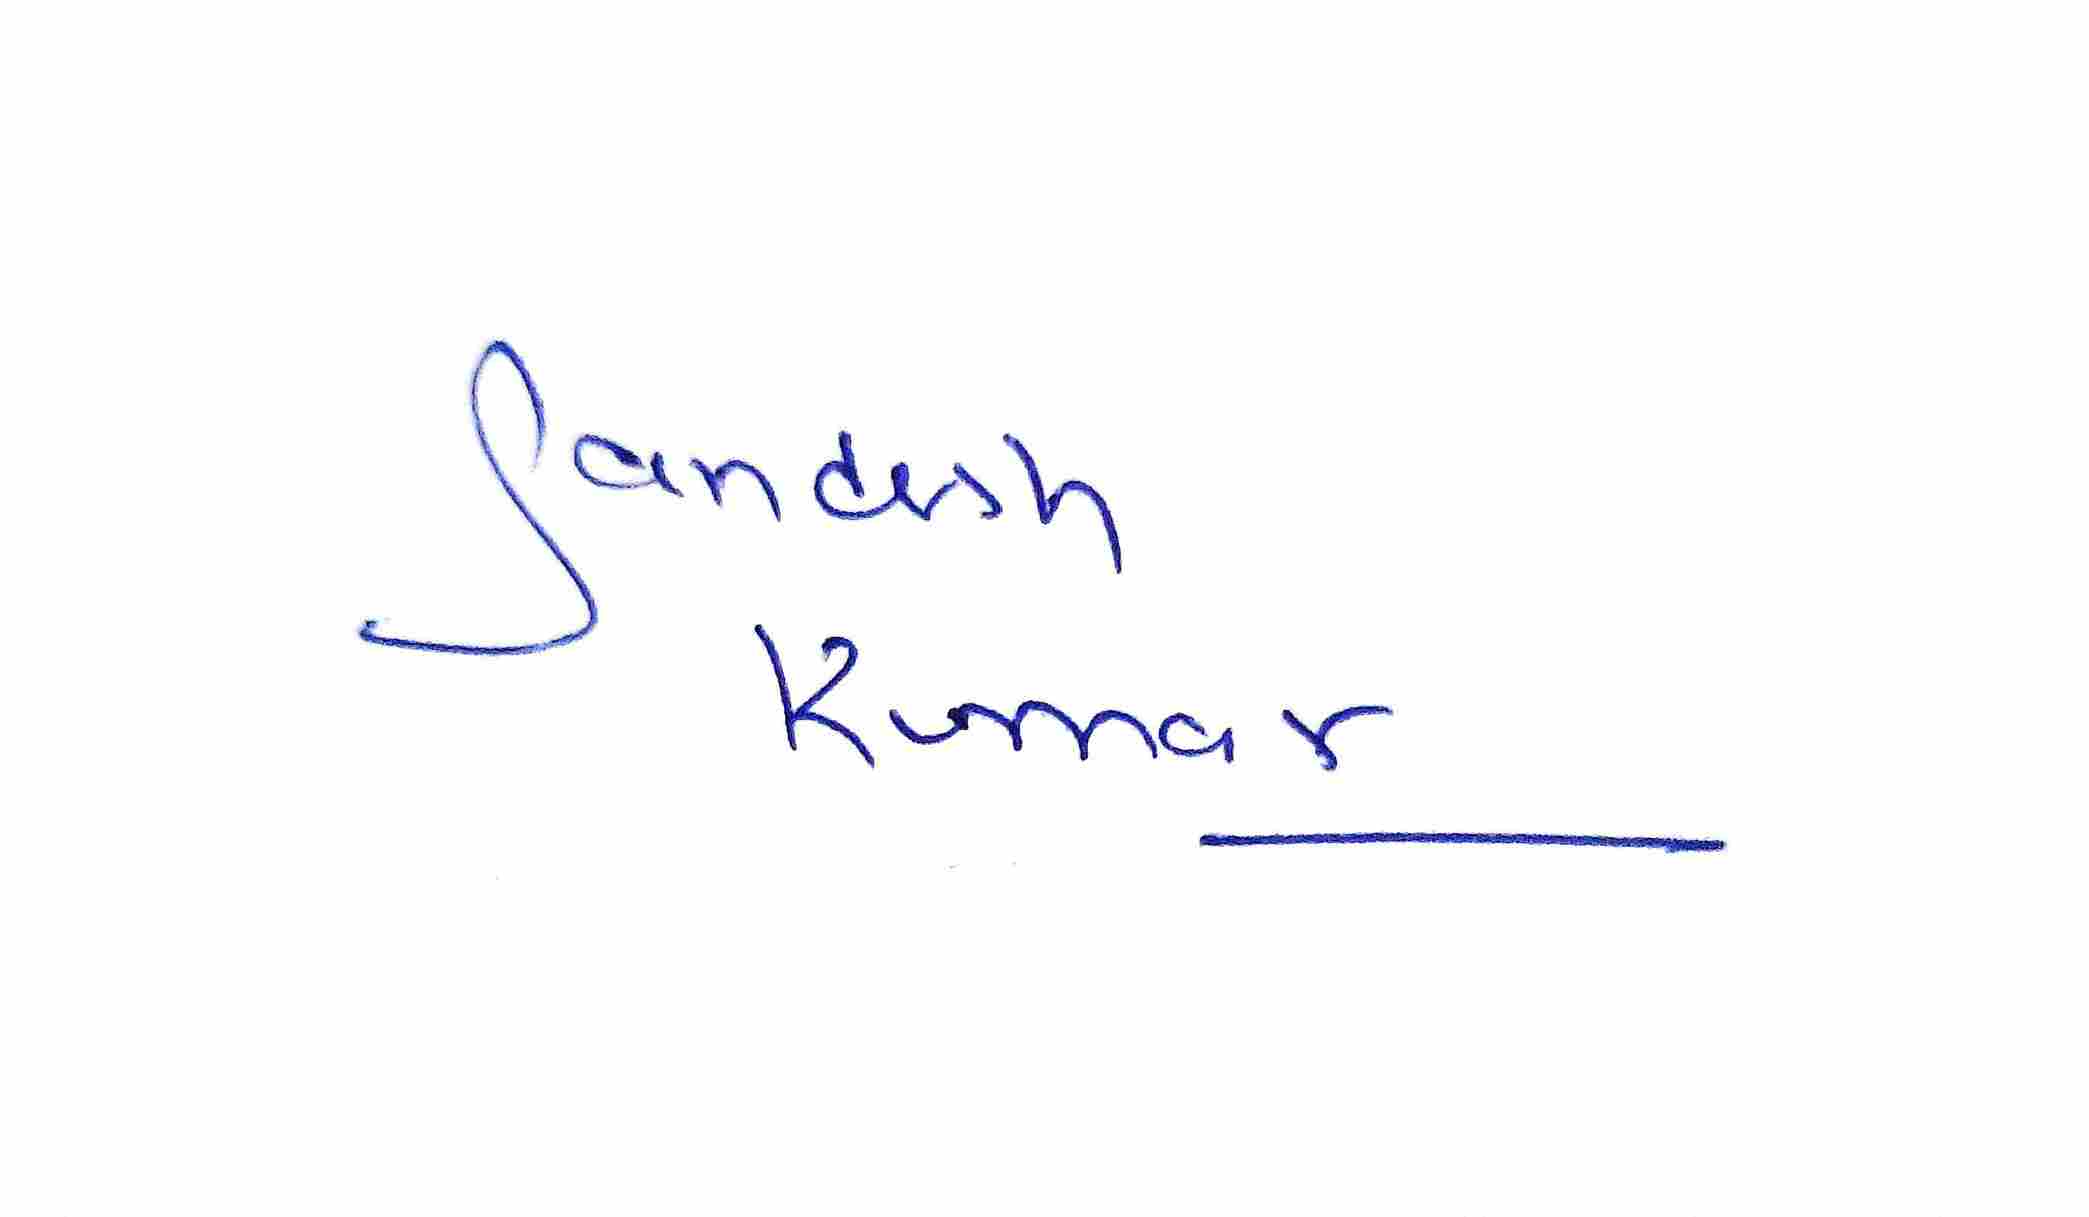 Sandesh
Kumar